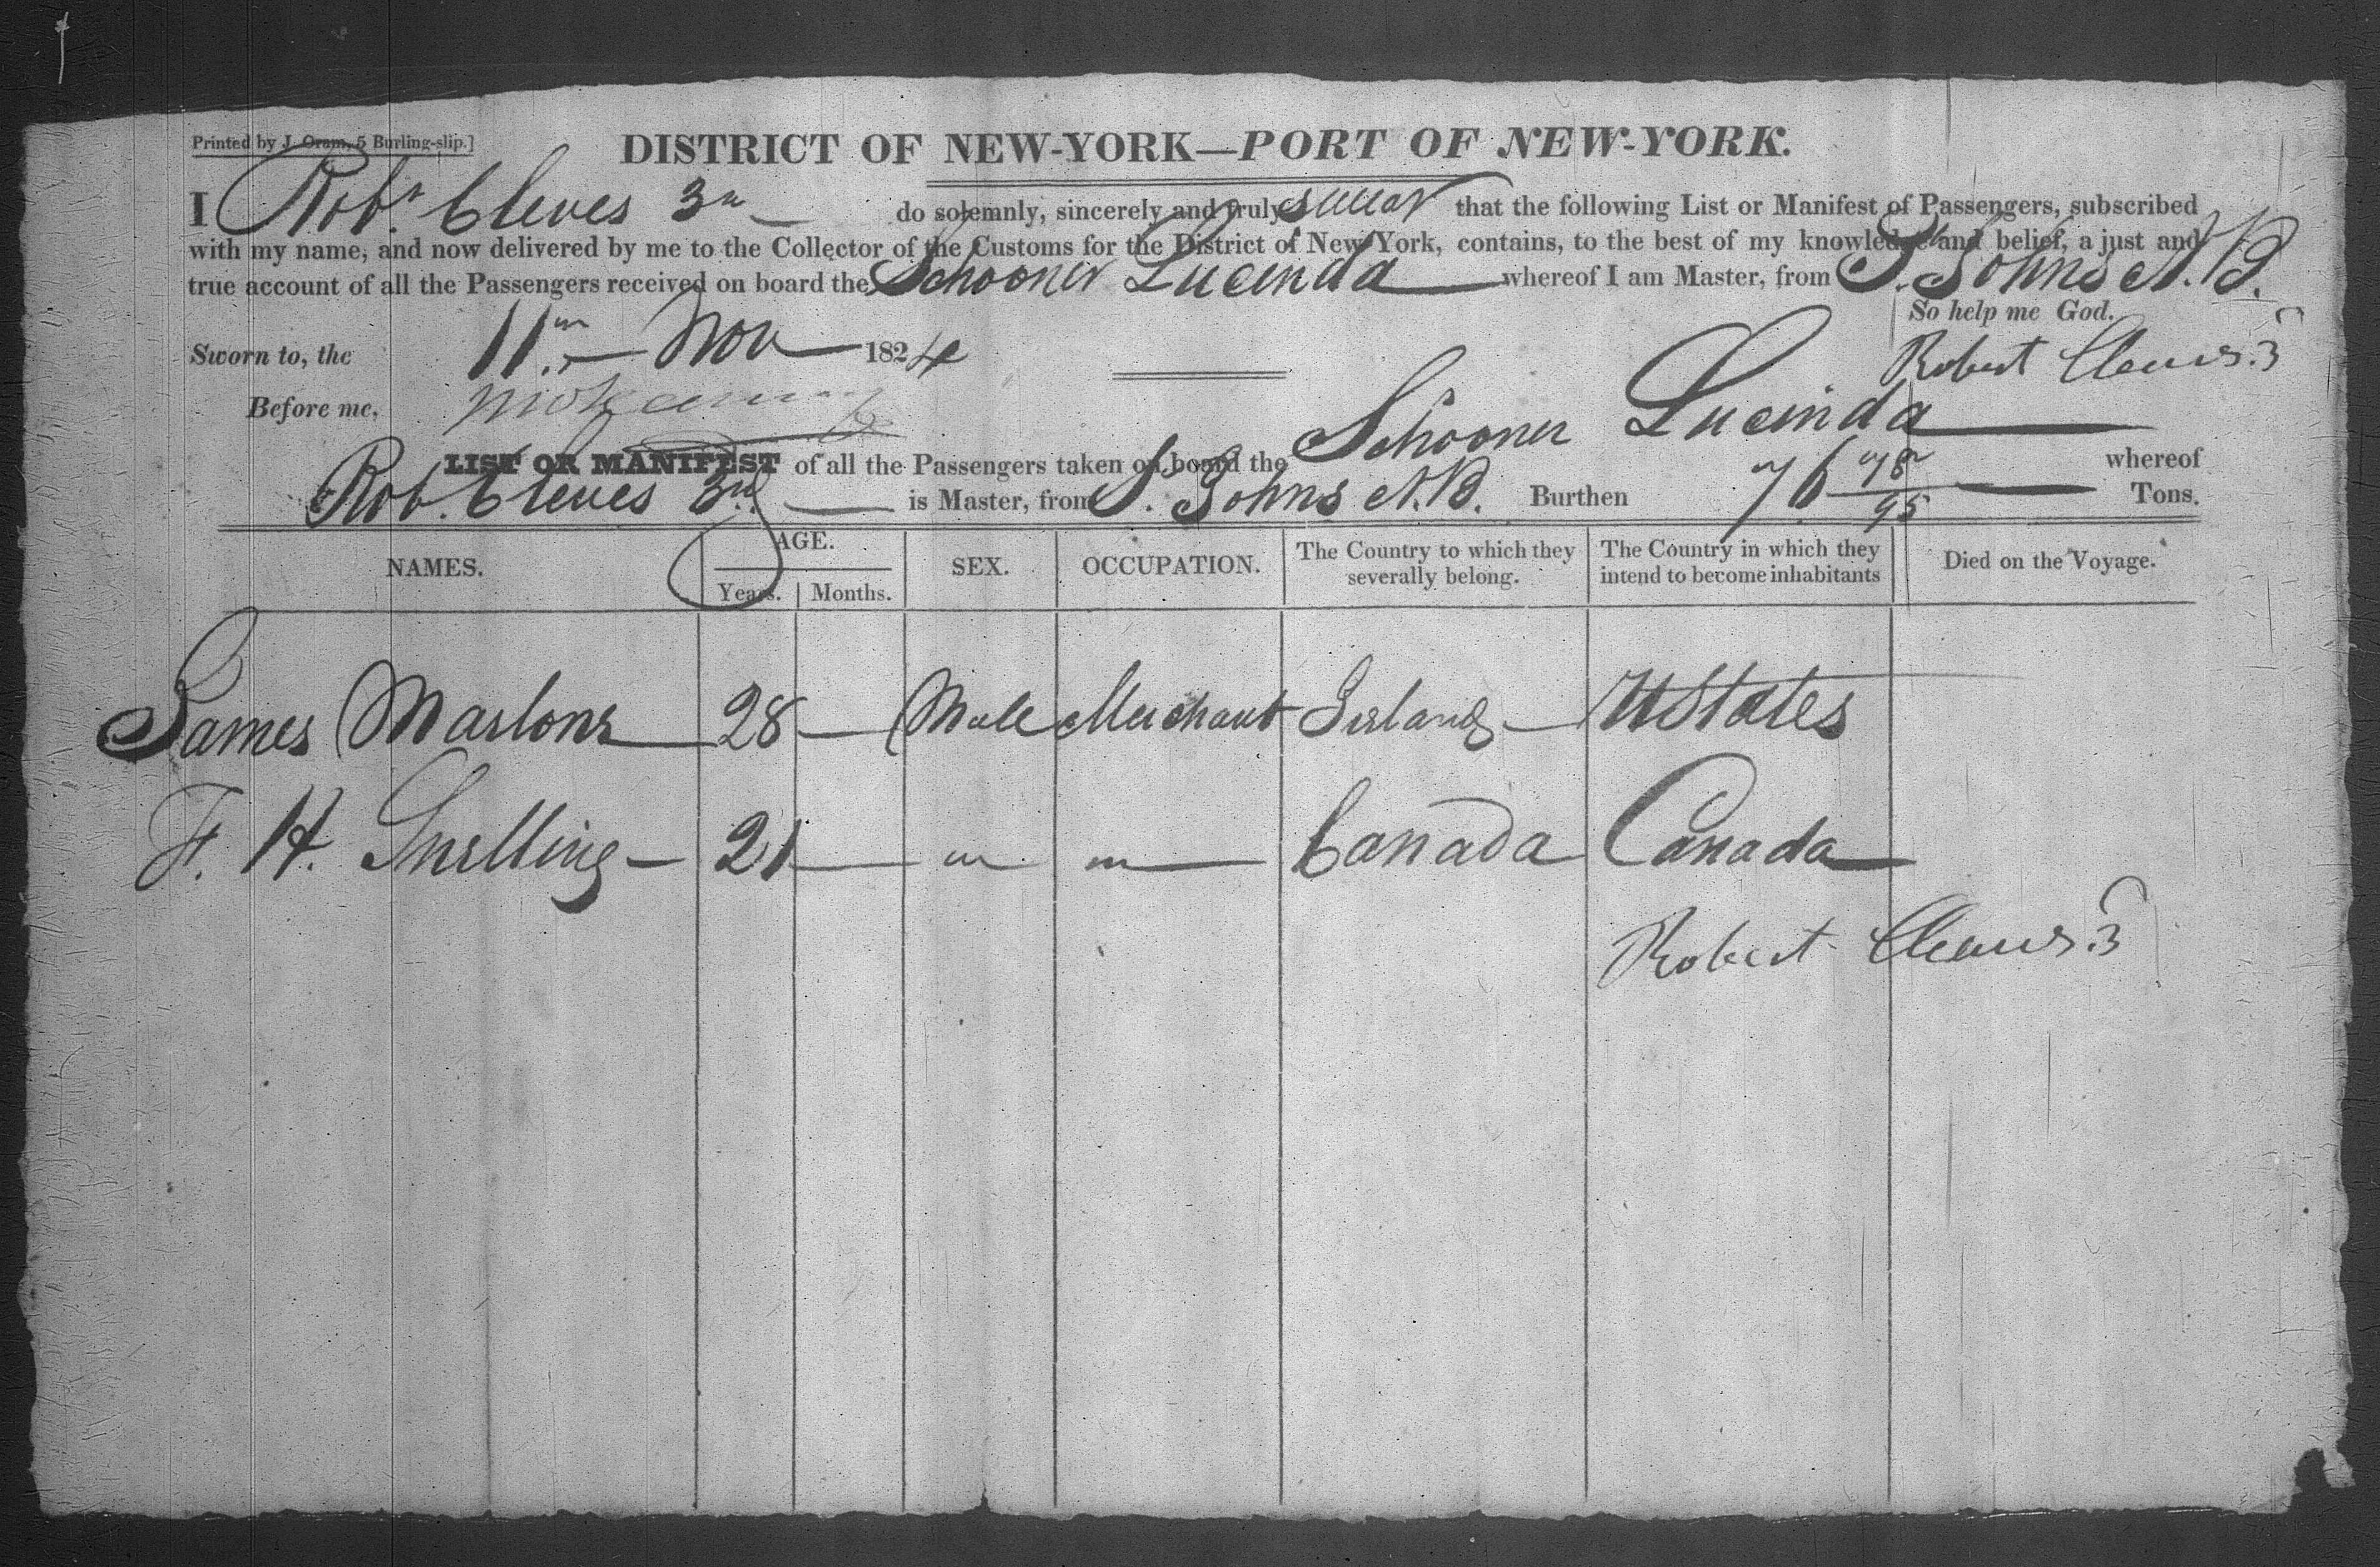 Printed by J. Oram, 5 Burling-slip.]
DISTRICT OF NEW-YORK—PORT OF NEW-YORK.
I Robt. Cleves 3rd do solemnly, sincerely and truly swear that the following List or Manifest of Passengers, subscribed
with my name, and now delivered by me to the Collector of the Customs for the District of New York, contains, to the best of my knowledge and belief, a just and
true account of all the Passengers received on board the Schooner Lucinda whereof I am Master, from St. Johns N.B.
So help me God.
Sworn to, the 11th Nov 1824
Robert 3
Before me,
LIST OR MANIFEST of all the Passengers taken on board the Schooner Lucinda whereof
Rob. Cleves 3rd. is Master, from St. Johns N.B. Burthen 76 78/95 Tons.
NAMES. AGE. Years. Months. SEX. OCCUPATION. The Country to which they severally belong. The Country in which they intend to become inhabitants Died on the Voyage.
James 28 — Male Merchant Irland — UStates
F. H. Snelling — 21 — " " — Canada Canada —
Robert 3